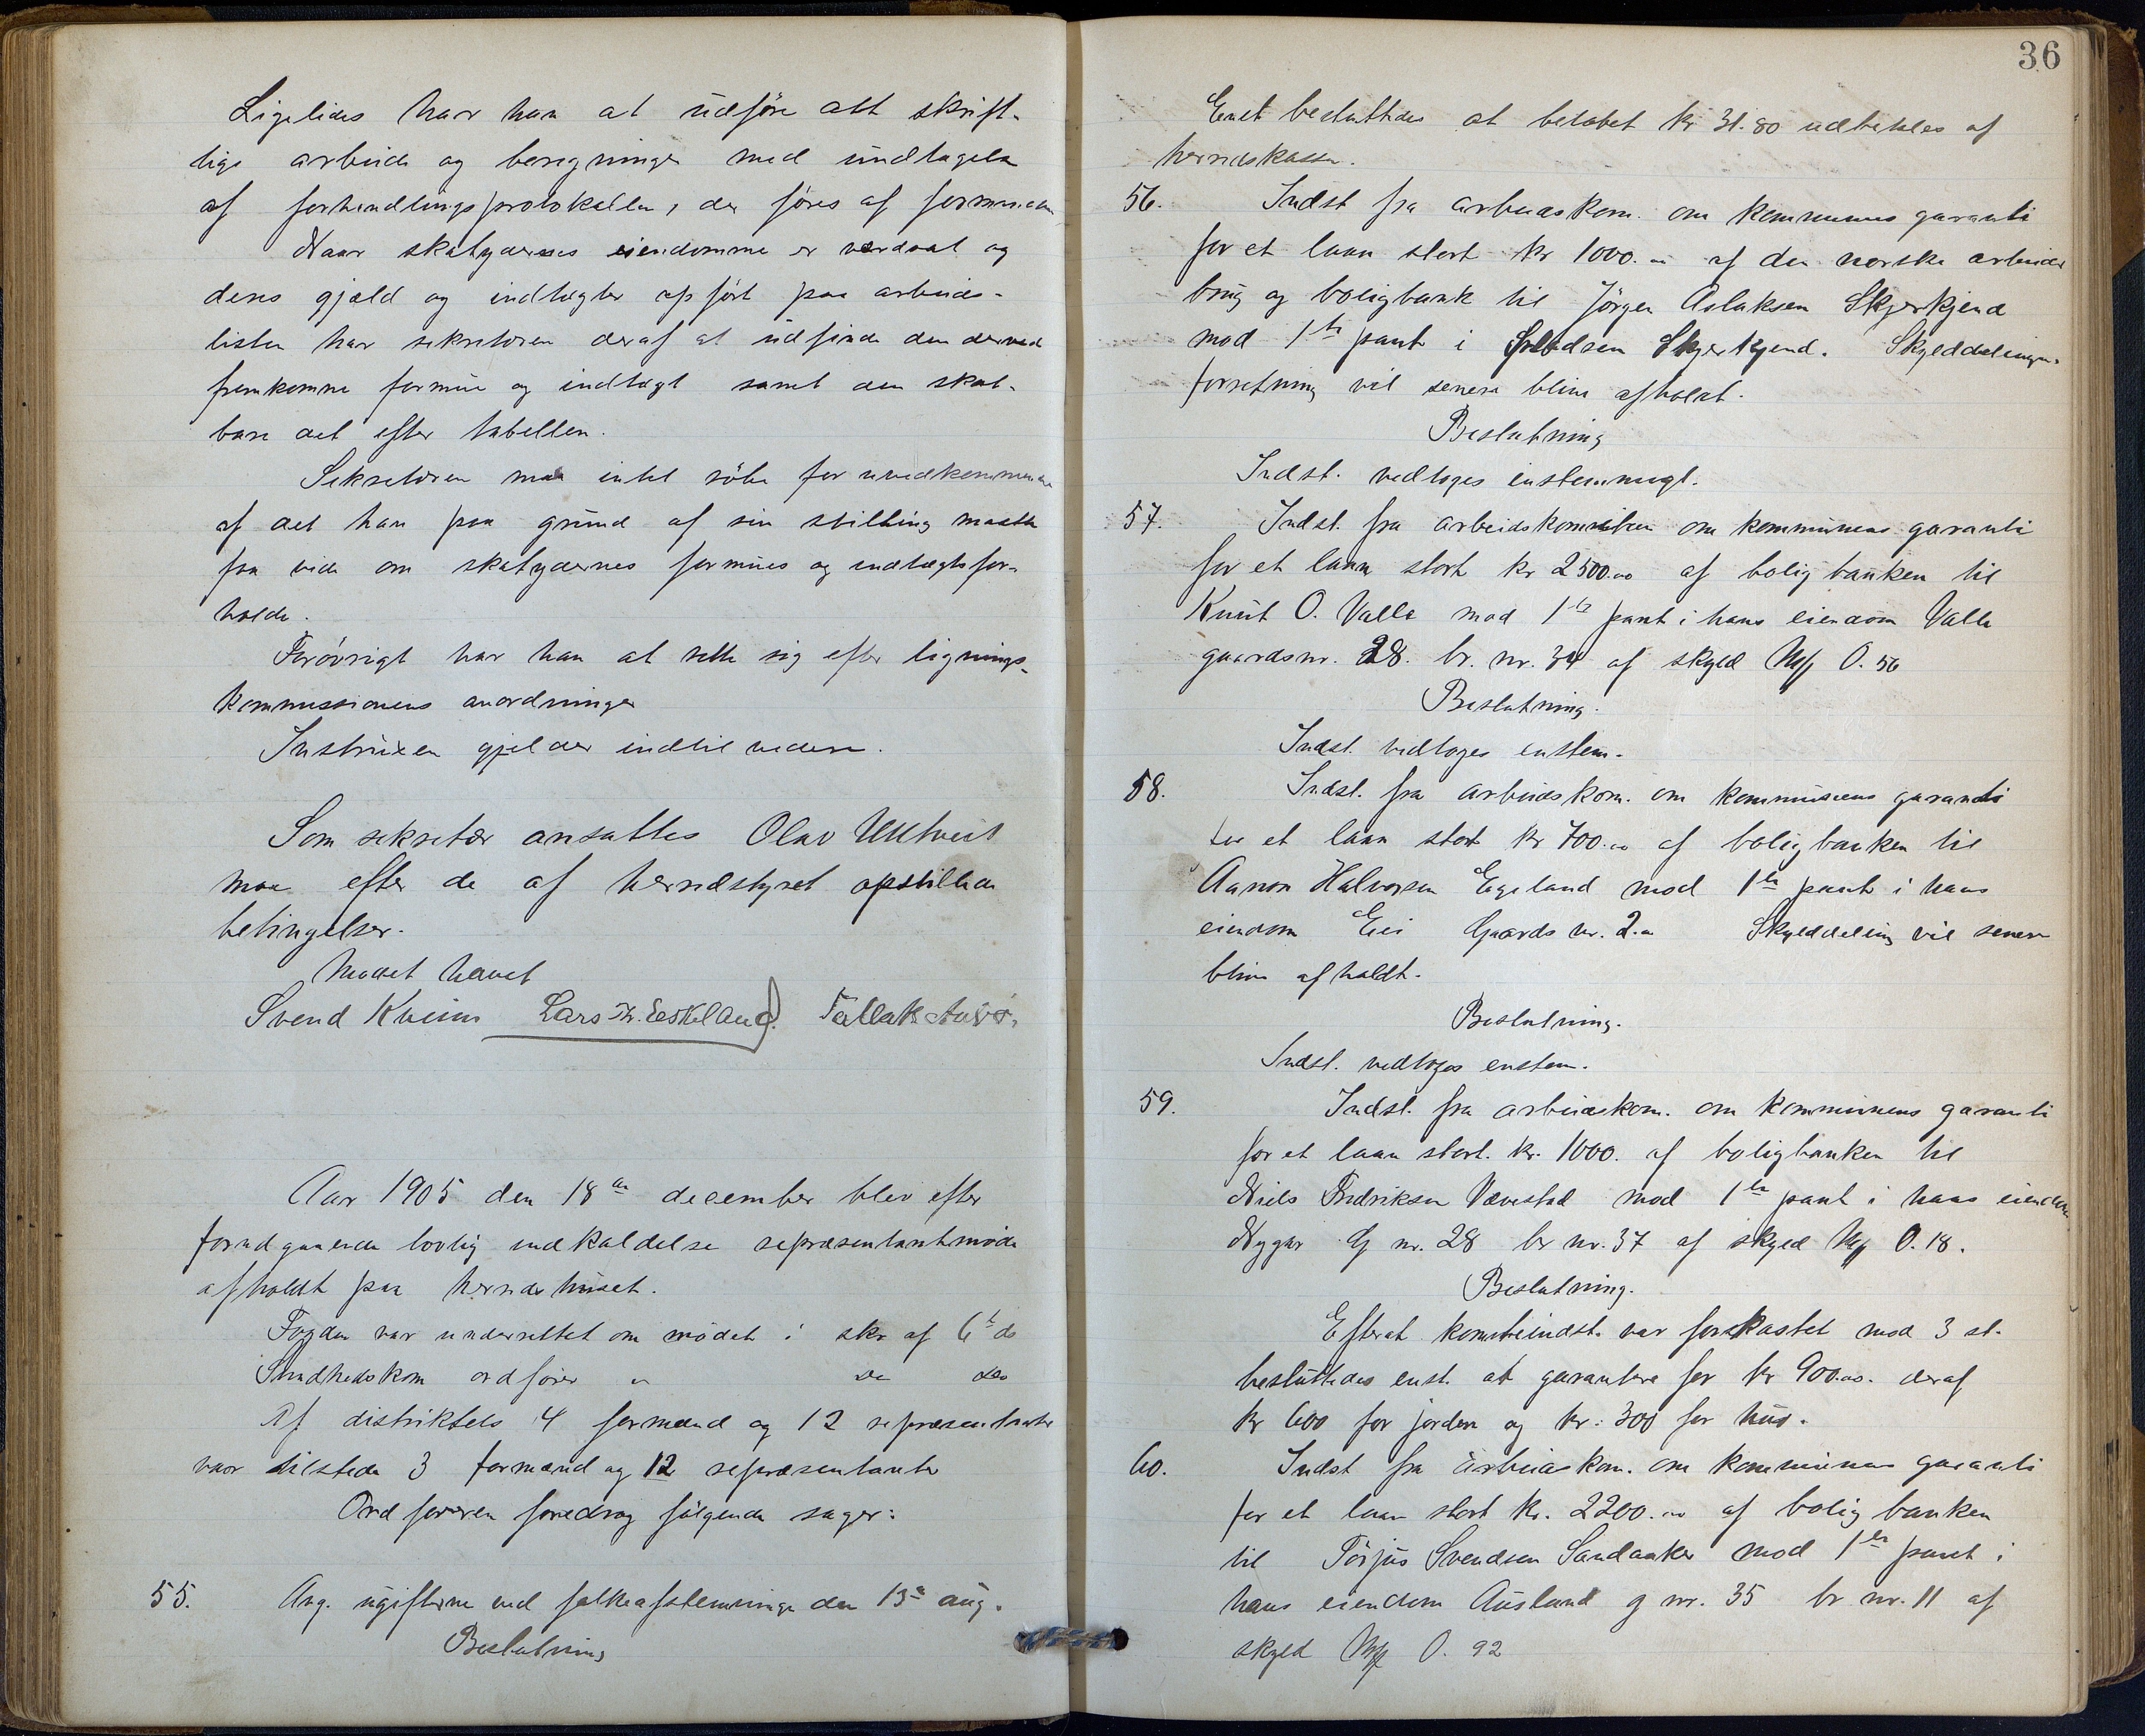 Ligeledes har han at udføre alt skrift-
lige arbeide og beregninger med undtagelse
af forhandlingsprotokollen, der føres af formanden
Naar skatydernes eiendomme er værdsat og
deres gjæld og indtægter opført paa arbeids-
listen har sekretæren deraf at udfinde den derved
fremkomne formue og indtægt samt den skat-
bare del efter tabellen.
Sekretæren maa intet røbe for uvedkommende
af det han paa grund af sin stilling maatte
faa vide om skatydernes formues og indtægtsfor-
holde.
Forøvrigt har han at rette sig efter lignings-
kommissionens anordninger
Instruxen gjelder indtil videre.
Som sekretær ansattes Olav
efter de af herredstyret opstillede
betingelser.
Mødet hævet
Svend Kveim Lars Kr. Eskeland Tallak
Aar 1905 den 18de december blev efter
forudgaaende lovlig indkaldelse repræsentantmøde
afholdt paa herredshuset.
Fogden var underrettet om mødet i skr af 6t ds
Sundhedskom ordfører " " de ds
Af distriktets 4 formænd og 12 repræsentanter
var tilstede 3 formænd og 12 repræsentanter
Ordføreren foredrog følgende sager:
55. Ang. ugifterne ved folkeafstemninge den 13de aug.
Beslutning
36
Enst besluttedes at beløbet kr 31.80 udbetales af
herredskassen.
56. Indst fra arbeidskom. om kommunens garanti
for et laan stort kr 1000.00 af den norske arbeider
brug og boligbank til Jørgen Aslaksen Skjerkjend
mod 1ste pant i Skjerkjend. Skylddelings-
forretning vil senere blive afholdt.
Beslutning
Indst. vedtoges enstemmigt.
57. Indst. fra arbeidskomiteen om kommunens garanti
for et laan stort kr 2500.00 af boligbanken til
Knut O. Valle mod 1ste pant i hans eiendom Valle
gaardsnr. 28. br. nr. 34 af skyld Mk 0.56
Beslutning.
Indst. vedtoges enstem.
58. Indst. fra arbeidskom. om kommunens garanti
for et laan stort kr 700.00 af boligbanken til
Aanon Halvorsen Egeland mod 1ste pant i hans
eiendom Eie Gaards nr. 2. Skylddeling vil senere
blive afholdt.
Beslutning.
Indst. vedtoges enstem.
59. Indst. fra arbeidskom. om kommunens garanti
for et laan stort. kr. 1000. af boligbanken til
Niels Fredriksen Vævestad mod 1ste pant i hans eiendom
G nr. 28 br nr. 37 af skyld Mk 0.18.
Beslutning.
Efterat komiteindst. var forkastet mod 3 st.
besluttedes enst. at garantere for kr 900.00. deraf
kr 600 for jorden og kr. 300 for hus.
60. Indst fra arbeidskom. om kommunens garanti
for et laan stort kr. 2200.00 af boligbanken
til Torjus Svendsen Sandaaker mod 1ste pant i
hans eiendom Ausland g nr. 35 br nr. 11 af
skyld Mk 0.92